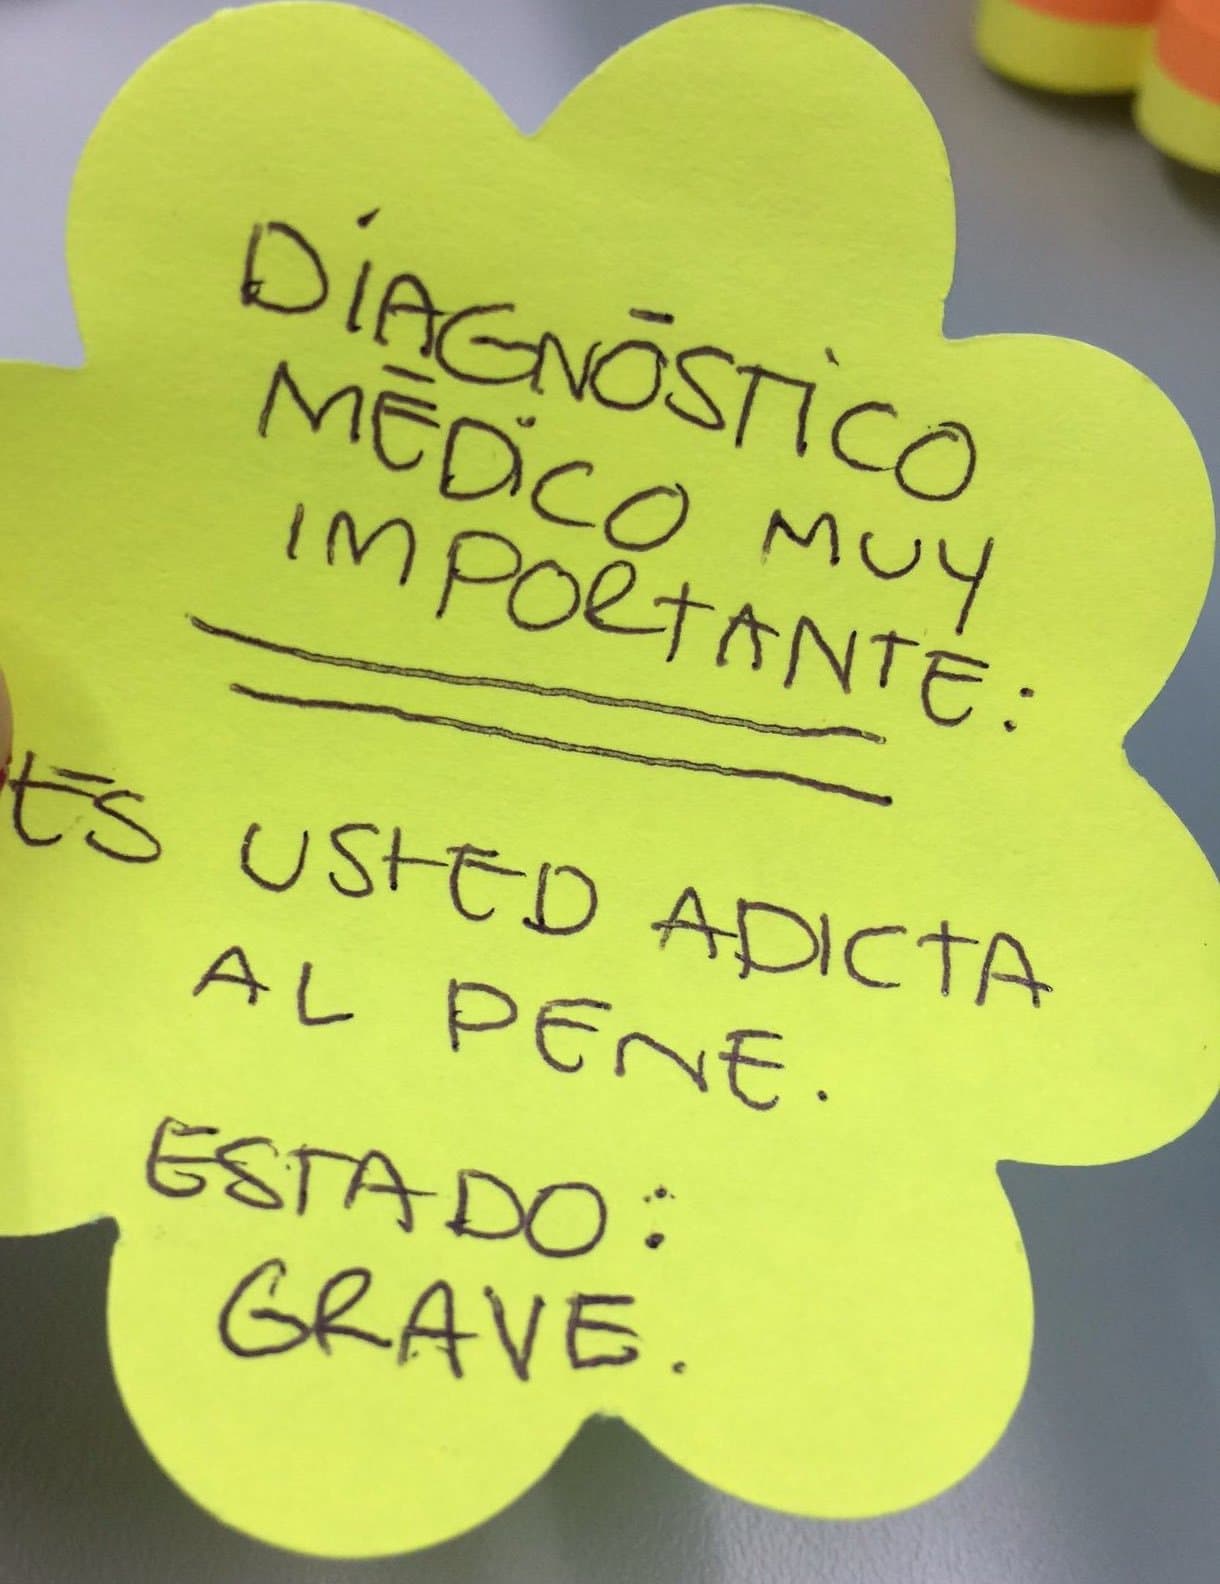 DIAGNÓSTICO
MÉDICO MUY
IMPORTANTE:
ES USTED ADICTA
AL PENE.
ESTADO:
GRAVE.